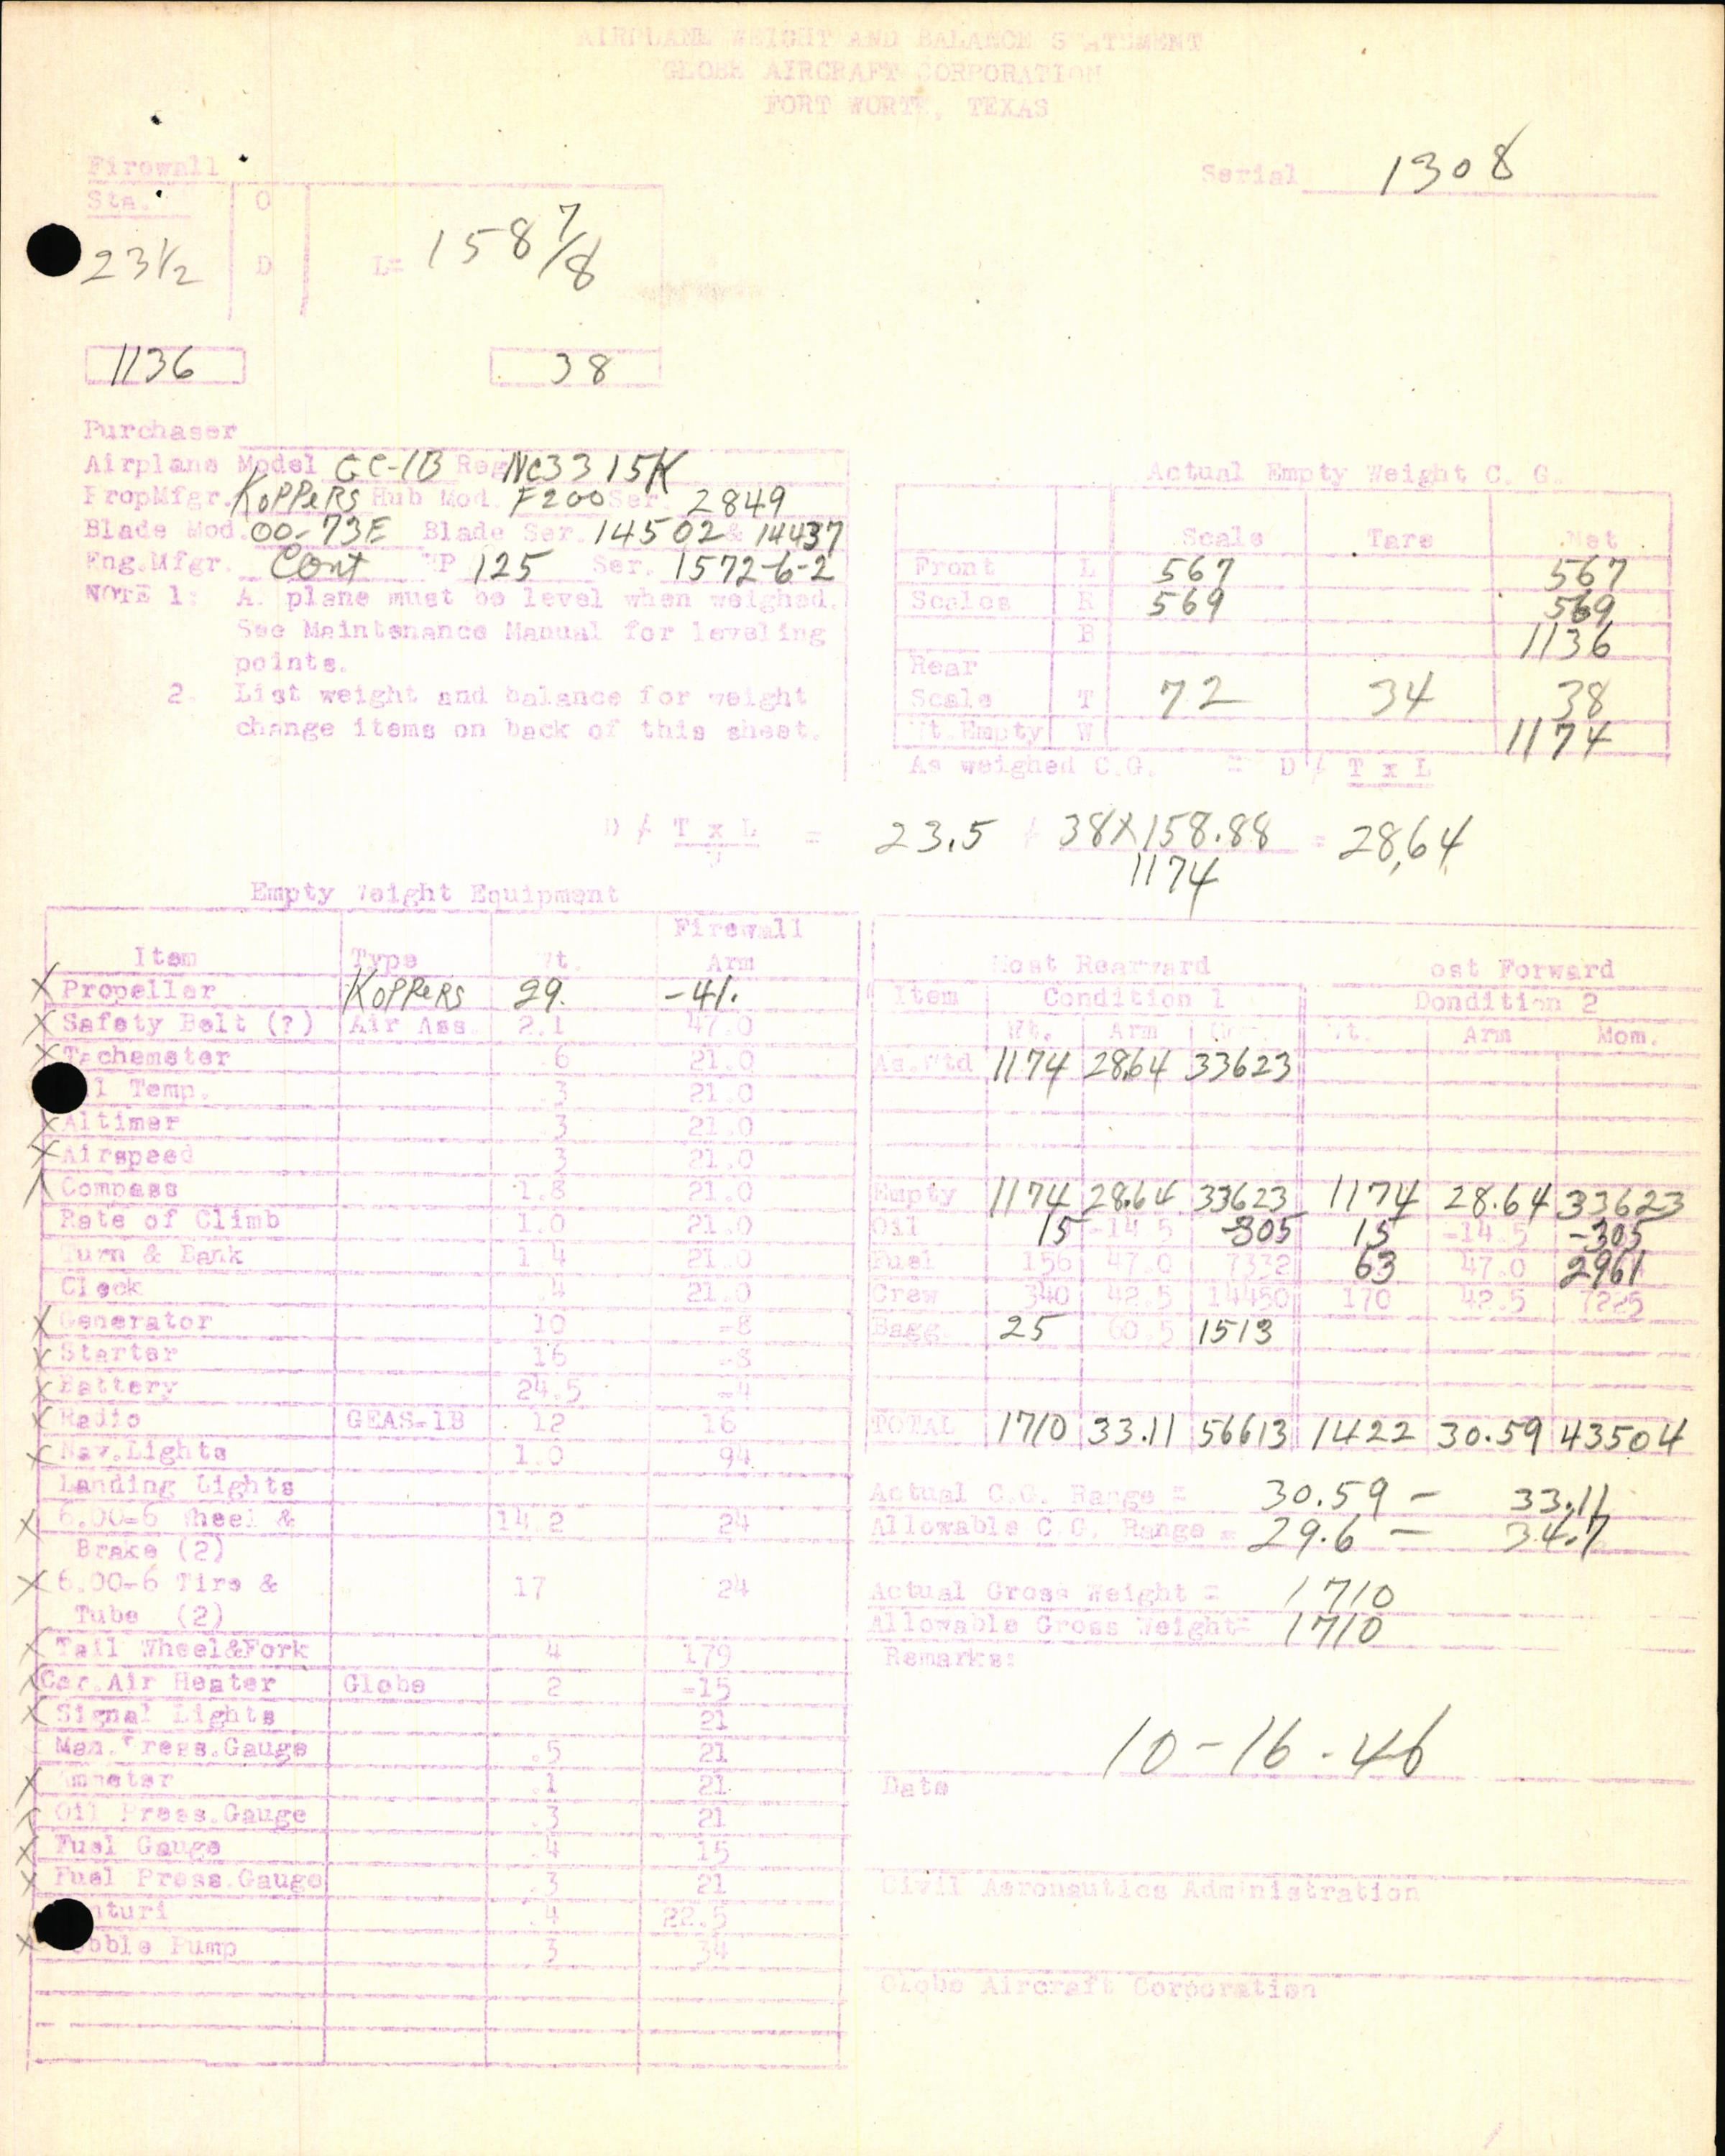 AIRPLANE WEIGHT AND BALANCE STATEMENT
GLOBE AIRCRAFT CORPORATION
FORT WORTH, TEXAS
Firewall
Serial 1308
Sta. O
23 1/2 D L= 158 7/8
1136 38
Purchaser
Airplane Model GC-1B Reg NC3315K
PropMfgr. KOPPERS Hub Mod. F200 Ser. 2849
Blade Mod. 00-73E Blade Ser. 14502 & 14437
Eng.Mfgr. Cont HP 125 Ser. 1572-6-2
NOTE 1: A. plane must be level when weighed.
See Maintenance Manual for leveling
points.
2. List weight and balance for weight
change items on back of this sheet.
Actual Empty Weight C. G.
Scale Tare Net
Front L 567 567
Scales R 569 569
B 1136
Rear
Scale T 72 34 38
Wt.Empty W 1174
As weighed C.G. = D / T x L
D / T x L = 23.5 / 38X158.88 = 28.64
W 1174
Empty Weight Equipment
Firewall
Item Type Wt. Arm
X Propeller KOPPERS 29. -41.
X Safety Belt (?) Air Ass. 2.1 47.0
X Tachometer .6 21.0
Oil Temp. .3 21.0
X Altimer .3 21.0
X Airspeed .3 21.0
X Compass 1.8 21.0
Rate of Climb 1.0 21.0
Turn & Bank 1.4 21.0
Clock .4 21.0
X Generator 10 -8
X Starter 16 -3
X Battery 24.5 -4
X Radio GEAS-1B 12 16
X Nav.Lights 1.0 94
Landing Lights
X 6.00-6 Wheel & 14.2 24
Brake (2)
X 6.00-6 Tire & 17 24
Tube (2)
X Tail Wheel&Fork 4 179
X Car.Air Heater Globe 2 -15
X Signal Lights 21
Man.Press.Gauge .5 21
X Ammeter .1 21
X Oil Press.Gauge .3 21
X Fuel Gauge .4 15
X Fuel Press.Gauge .3 21
Venturi .4 22.5
X Wobble Pump 3 34
Most Rearward Most Forward
Item Condition 1 Dondition 2
Wt. Arm Mom. Wt. Arm Mom.
As.Wtd 1174 28.64 33623
Empty 1174 28.64 33623 1174 28.64 33623
Oil 15 -14.5 -305 15 -14.5 -305
Fuel 156 47.0 7332 63 47.0 2961
Crew 340 42.5 14450 170 42.5 7225
Bagg. 25 60.5 1513
TOTAL 1710 33.11 56613 1422 30.59 43504
Actual C.G. Range = 30.59 - 33.11
Allowable C.G. Range = 29.6 - 34.7
Actual Gross Weight = 1710
Allowable Gross Weight= 1710
Remarks:
10-16-46
Date
Civil Aeronautics Administration
Globe Aircraft Corporation